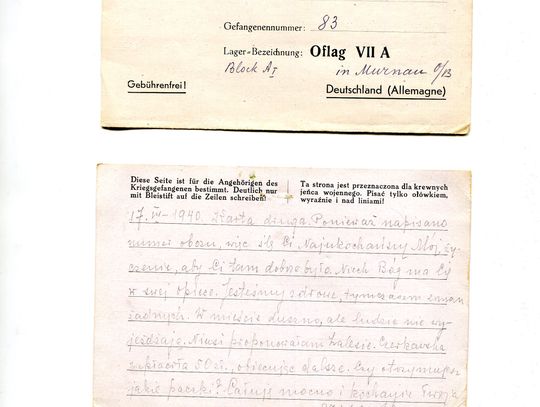 Gefangenennummer: 83
Lager-Bezeichnung: Oflag VII A
Block A I in Murnau O/B
Gebührenfrei! Deutschland (Allemagne)
Diese Seite ist für die Angehörigen des
Kriegsgefangenen bestimmt. Deutlich nur
mit Bleistift auf die Zeilen schreiben!
Ta strona jest przeznaczona dla krewnych
jeńca wojennego. Pisać tylko ołówkiem,
wyraźnie i nad liniami!
17. IV - 1940. Karta druga. Ponieważ napisano
numer obozu, więc ślę Ci Najukochańszy Mój, ży-
czenie, aby Ci tam dobrze było. Niech Bóg ma Cię
w swej opiece. Jesteśmy zdrowe, tymczasem zmian
żadnych. W mieście duszno, ale ludzie nie wy-
jeżdżają. Niusi proponowałam Zalesie. Czerkawska
zapłaciła 50 zł., obiecując dalsze. Czy otrzymujesz
jakie paczki? Całuję mocno i kochająco Twoja